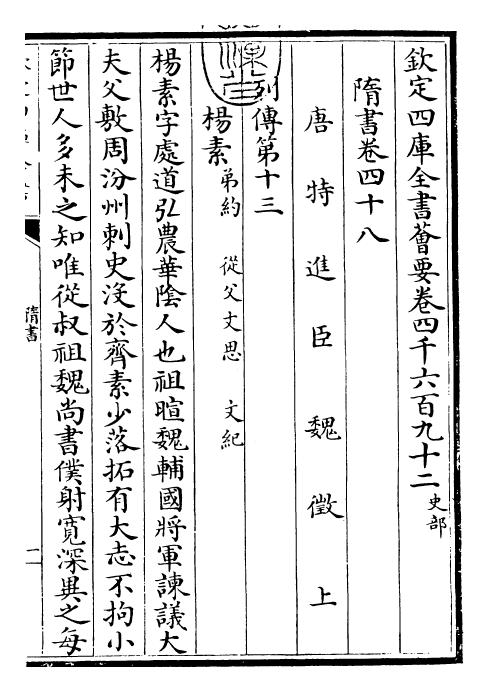 欽定四庫全書薈要卷四千六百九十二 史部
隋書卷四十八
唐特進臣魏徵上
列傳第十三
楊素 弟約 從父文思 文紀
楊素字處道弘農華陰人也祖暄魏輔國將軍諫議大
夫父敷周汾州刺史沒於齊素少落拓有大志不拘小
節世人多未之知唯從叔祖魏尚書僕射寛深異之每
隋書
一